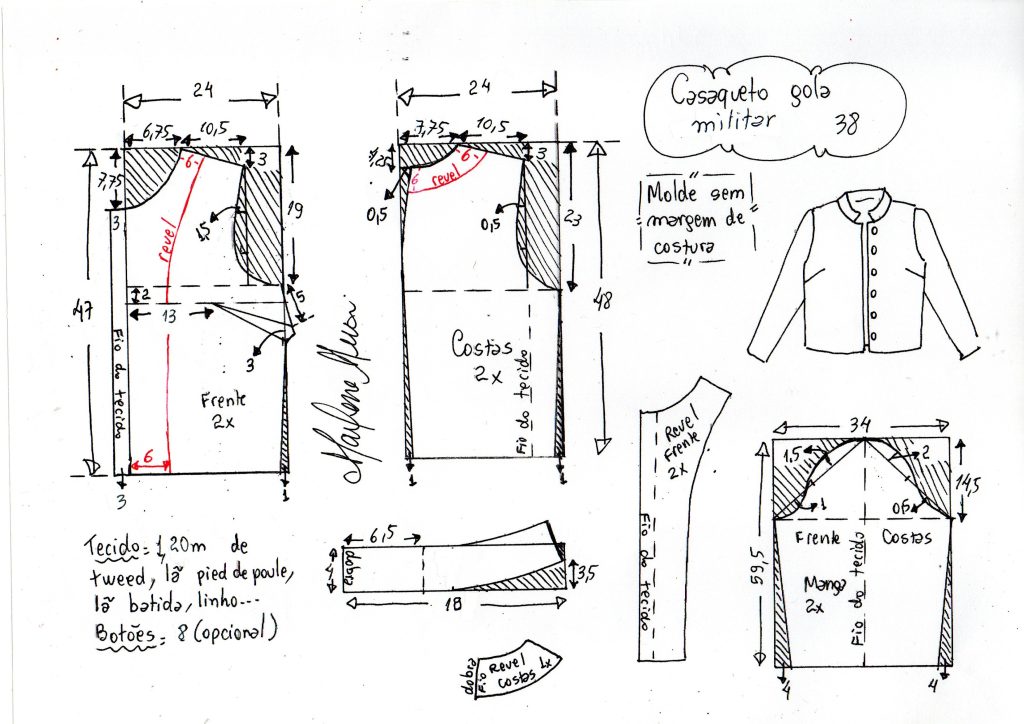 Casaqueto gola
militar 38
Molde sem
margem de
costura
24
6,75 10,5
3
7,75
6
3
revel
1,5
19
47
2
13
5
3
Fio do tecido
Frente
2x
6
3
1
Marlene Mukai
24
7,75 10,5
3
6
6
revel
0,5
0,5
23
48
Costas
2x
Fio do tecido
1
1
Revel
Frente
2x
Fio do tecido
34
1,5
2
14,5
1
0,5
Frente Costas
59,5
Manga
2x
Fio do tecido
4
4
Tecido = 1,20m de
tweed, lã pied de poule,
lã batida, linho...
Botões = 8 (opcional)
6,5
4
dobra
3,5
18
dobra
Fio
Revel
costas 1x